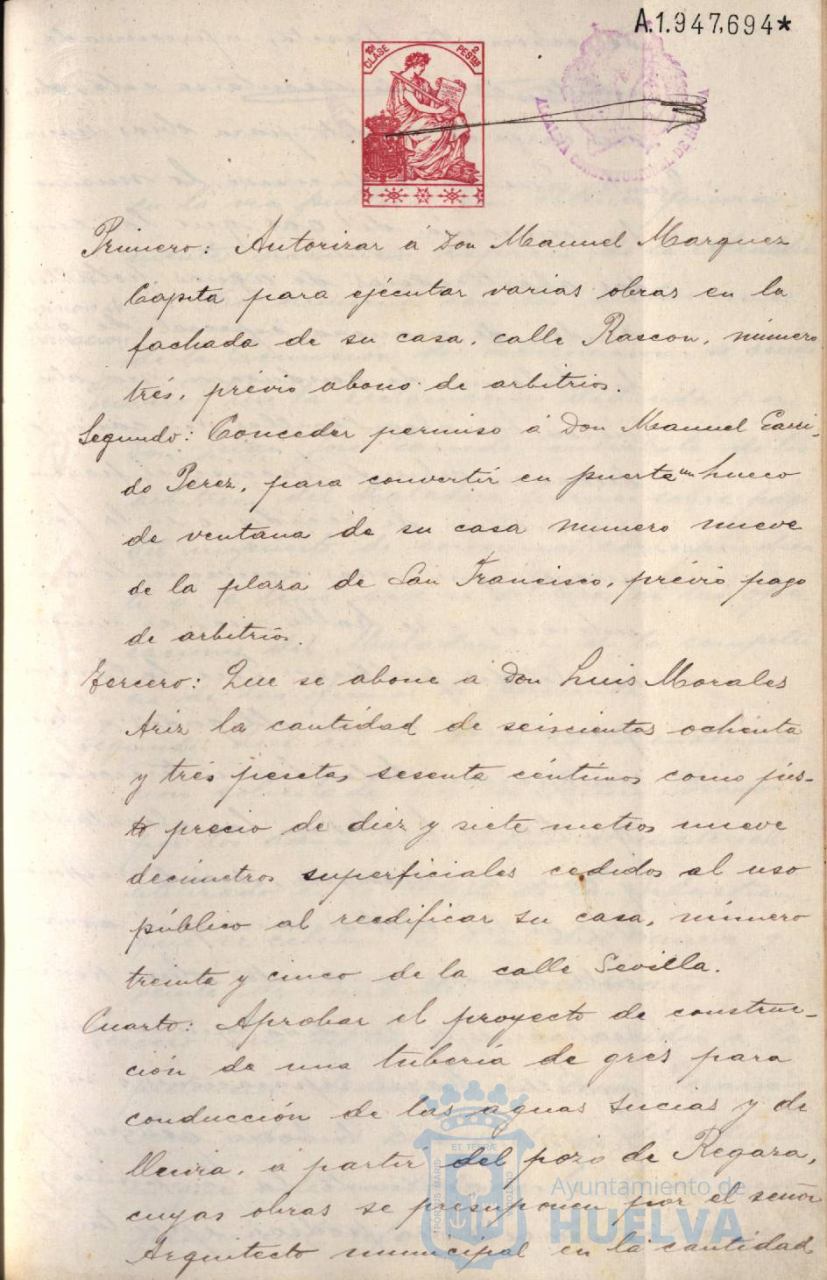 A.1.947,694*
10ª CLASE 2 PESETAS
ALCALDIA CONSTITUCIONAL DE HUELVA
Primero: Autorizar á Don Manuel Marquez
Capita para ejecutar varias obras en la
fachada de su casa, calle Rascon, número
trés, prévio abono de arbitrios.
Segundo: Conceder permiso á Don Manuel Garri-
do Perez, para convertir en puerta un hueco
de ventana de su casa numero nueve
de la plaza de San Francisco, prévio pago
de arbitrios.
Tercero: Que se abone á Don Luis Morales
Ariz la cantidad de seiscientas ochenta
y trés pesetas sesenta céntimos como jus-
to precio de diez y siete metros nueve
decimetros superficiales cedidos al uso
público al reedificar su casa, número
treinta y cinco de la calle Sevilla.
Cuarto: Aprobar el proyecto de construc-
ción de una tuberia de gres para
conducción de las aguas sucias y de
lluvia, á partir del pozo de Regara,
cuyas obras se presuponen por el señor
Arquitecto municipal en la cantidad
Ayuntamiento de
HUELVA